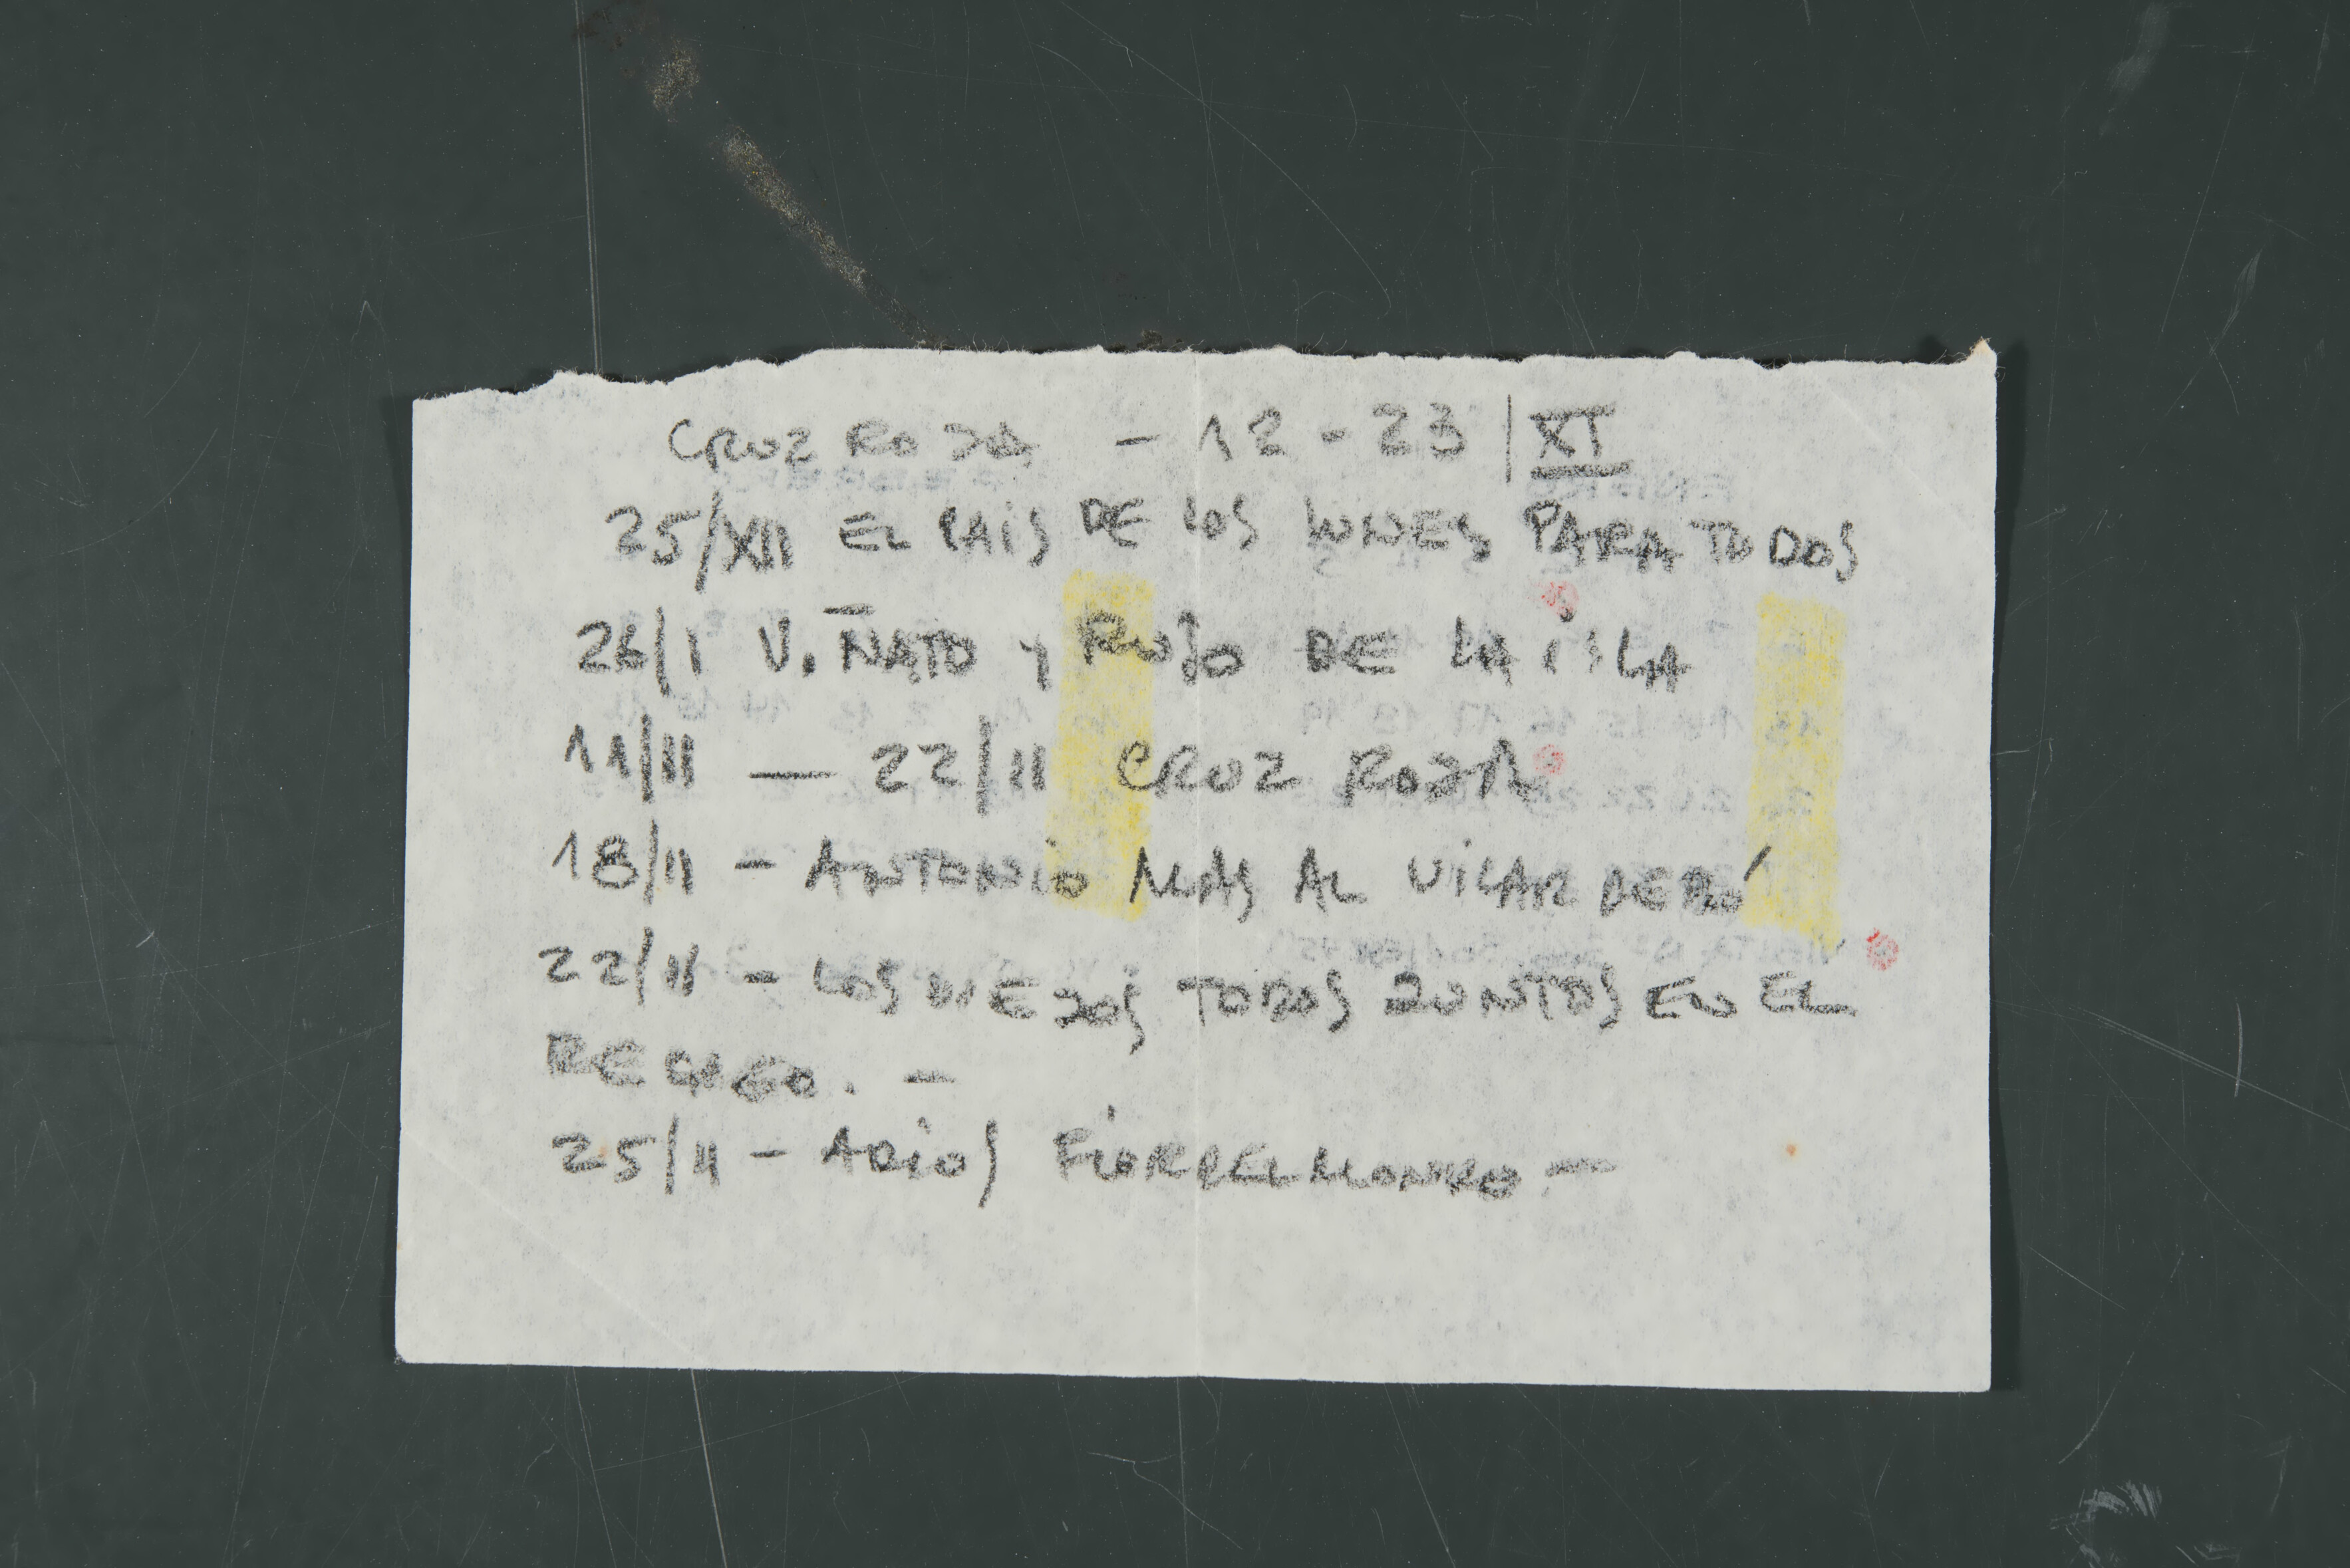 CRUZ ROJA - 12 - 23 | XI
25/XII EL PAIS DE LOS LUNES PARA TODOS
26/I V. ÑATO Y RUJO DE LA ISLA
11/II — 22/II CRUZ ROJA
18/II - ANTONIO MAS AL VILARDEBÓ
22/II - LOS VIEJOS TODOS JUNTOS EN EL
RECREO. -
25/II - ADIOS FIORDELMONDO. -